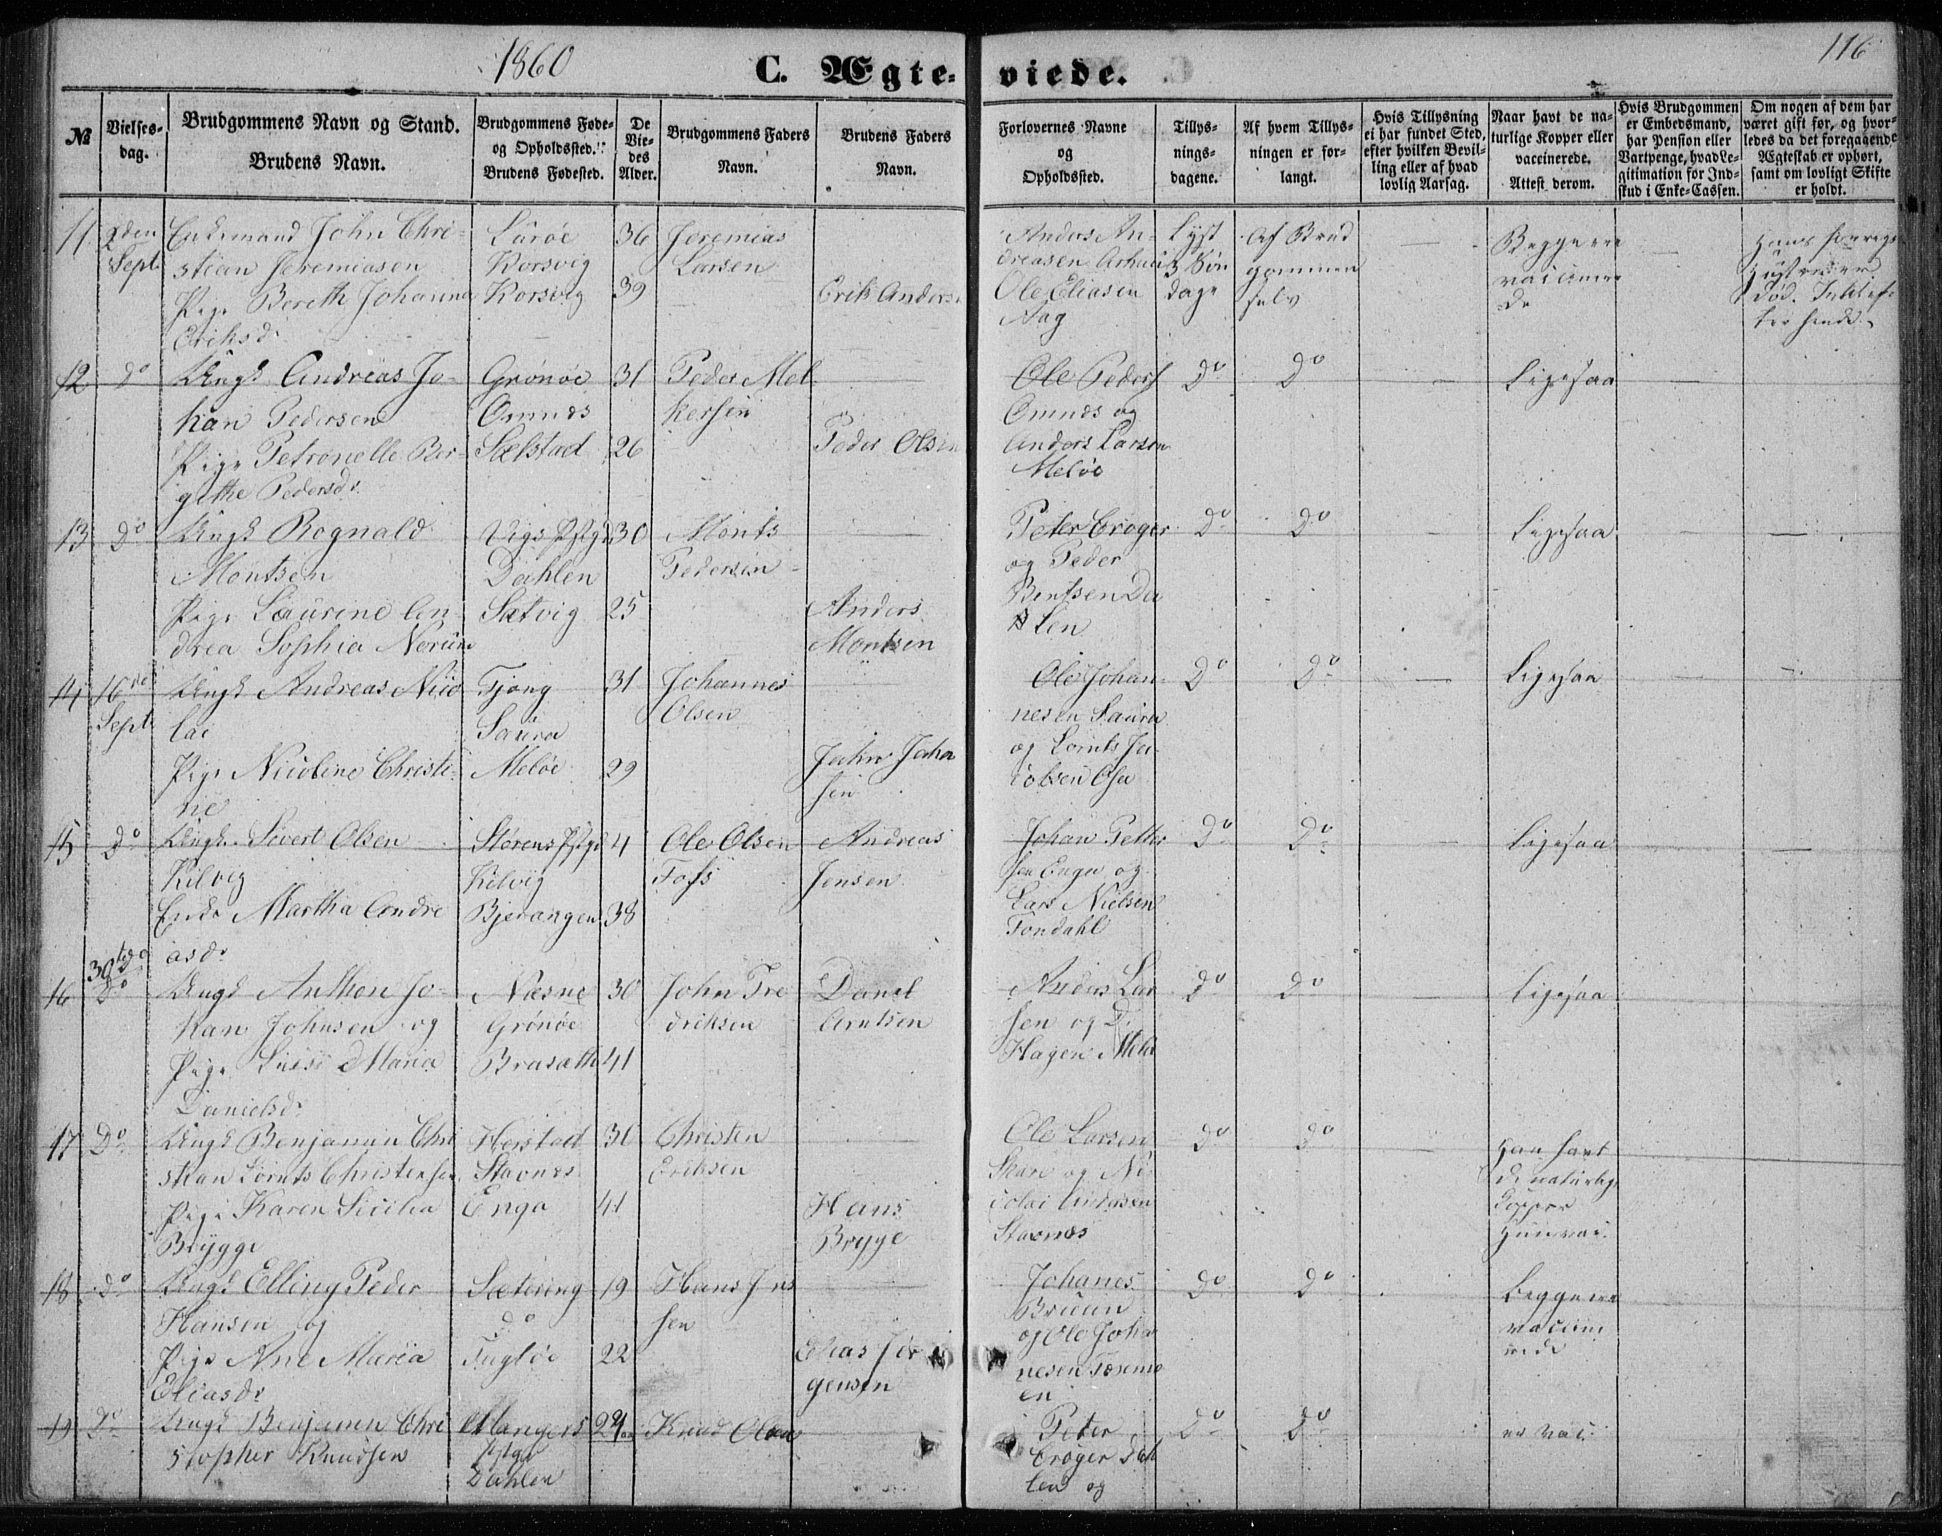 1860
C. Ægte-
viede.
116
№
Vielses-
dag.
Brudgommens Navn og Stand.
Brudens Navn.
Brudgommens Føde-
og Opholdssted.
Brudens Fødested.
De
Vie-
des
Alder.
Brudgommens Faders
Navn.
Brudens Faders
Navn.
Forlovernes Navne
og
Opholdssted.
Tillys-
nings-
dagene.
Af hvem Tillys-
ningen er for-
langt.
Hvis Tillysning
ei har fundet Sted,
efter hvilken Bevil-
ling eller af hvad
lovlig Aarsag.
Naar havt de na-
turlige Kopper eller
vaccinerede.
Attest derom.
Hvis Brudgommen
er Embedsmand,
har Pension eller
Vartpenge, hvad Le-
gitimation for Ind-
skud i Enke-Cassen.
Om nogen af dem har
været gift før, og hvor-
ledes da det foregaaende
Ægteskab er ophørt,
samt om lovligt Skifte
er holdt.
11
Sept
Enkemand John Chri-
stian Jeremiasen
Pige Bereth Johanna
Eriksd.
Lurøe
Korsvig
Korsvig
36
39
Jeremias
Larsen
Erik Anders
Anders An-
dreasen
Ole Eliasen
Aag
Lyst
3 Søn
dage
Af Brud
gommen
selv
Begge ere
vaccinere
de
død.
12
Do
Ungk Andreas Jo-
han Pedersen
Pige Petronelle Ber-
githe Pedersd.
Grønøe
Omnes
Selstad
31
26
Peder Mel
kersen
Peder Olsen
Ole Peders
Omnes og
Anders Larsen
Meløe
Do
Do
Ligesaa
13
Do
Ungk Rognald
Montsen
Pige Laurine An-
drea Sophia Norum
Vigs Pgld
Dahlen
Sætvig
30
25
Monts
Pedersen
Anders
Montsen
Peter Crøger
og Peder
Bentsen Da
len
Do
Do
Ligesaa
14
16de
Sept
Ungk Andreas Nico
lai
Pige Nicoline Christi-
ne
Tjong
Saura
Meløe
31
29
Johannes
Olsen
John Joha
sen
Ole Johan-
nesen Saura
og Lornts Ja-
cobsen
Do
Do
Ligesaa
15
Do
Ungk Sivert Olsen
Kilvig
Enke Martha Andre
asd.
Størens
Kilvig
Bjerangen
38
Ole Olsen
Foss
Andreas
Jensen
Johan Petter
sen Enga og
Lars Nielsen
Fondahl
Do
Do
Ligesaa
16
30te
Do
Ungk Anthon Jo-
han Johnsen og
Pige Maria
Danielsd.
Næsne
Grønøe
Brasæth
30
41
John Fre
driksen
Danel
Arntsen
Anders Lar
sen og
Hagen Melø
Do
Do
Ligesaa
17
Do
Ungk Benjamin Chri
stian Lornts Christensen
Pige Karen Sicilia
Brygge
Herstad
Stavnes
Enga
41
Christen
Eriksen
Hans
Brygge
Ole Larsen
Skar og Ni-
colai Andersen
Stavnes
Do
Do
Han havt
de naturlige
Kopper
Hun vac.
18
do
Ungk Elling Peder
Hansen og
Pige Ane Maria
Eliasd.
Sætering
do
Fugløe
19
22
Hans Jen
sen
Elias Jør
gensen
Johanes
Bruun
og Ole Joha
nesen
en
Do
Do
Begge ere
vaccine
rede
19
Do
Ungk Benjamin Chri
stopher Knudsen
Mangers
Dahlen
Knud Olsen
Peter
Crøger Dah
len og
Do
Do
er vac.